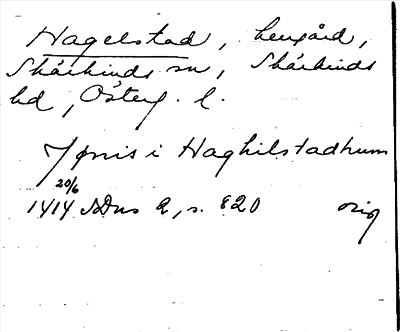 Hagelstad, herrgård,
Skärkinds sn, Skärkinds
hd, Österg. l.
Jønis i Haghilstadhum
20/6
1414 SDns 2, s. 820 orig